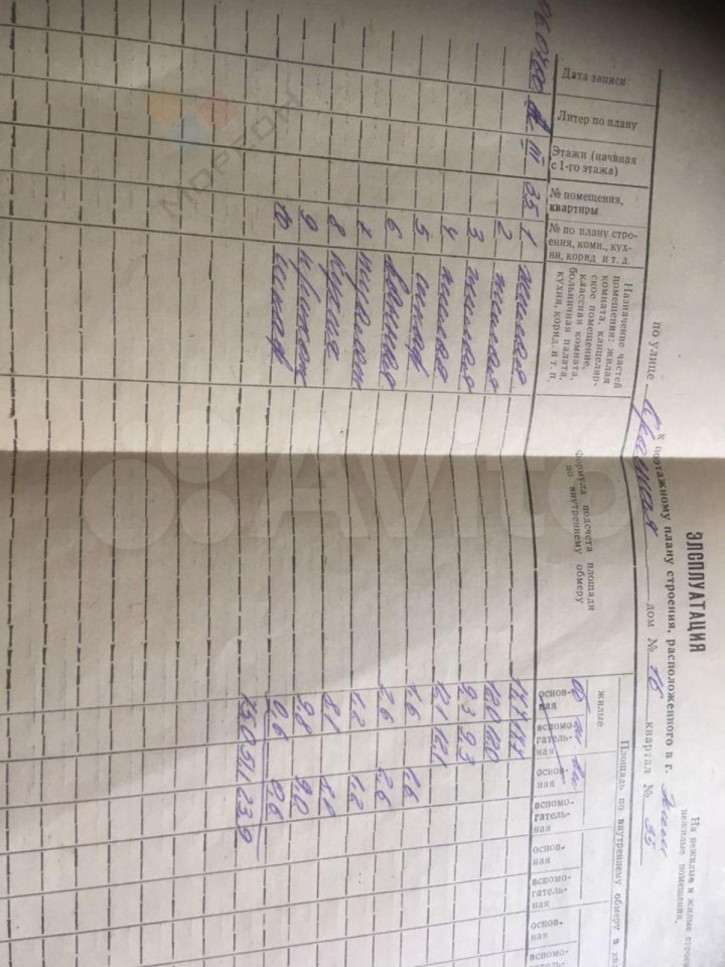 На нежилые и жилые строе
нежилые помещения.
ЭЛСПЛУАТАЦИЯ
к поэтажному плану строения, расположенного в г.
по улице Красная дом № 16 квартал № 35
Дата записи
Литер по плану
Этажи (начиная
с 1-го этажа)
№ помещения,
квартиры
№ по плану стро-
ения, комн., кух-
ни, корид и т. д.
Назначение частей
помещения: жилая
комната, канцеляр-
ское помещение,
классная комната,
больничная палата,
кухня, корид. и т. п.
Формула подсчета площади
по внутреннему обмеру
Площадь по внутреннему обмеру в кв
жилые
основ-
ная
вспомо-
гатель-
ная
основ-
ная
вспомо-
гатель-
ная
основ-
ная
вспомо-
гатель-
ная
основ-
ная
вспомо-
гатель-
III 35 1 жилая 17.7 17.7
2 жилая 12.0 12.0
3 жилая 9.3 9.3
4 жилая 12.1 12.1
5 шкаф 1.6 1.6
6 ванная 2.6 2.6
7 туалет 1.2 1.2
8 кухня 8.1 8.1
9 9.8
10 шкаф 0.6 0.6
75.0 51.1 23.9
МОРГОН
Avito